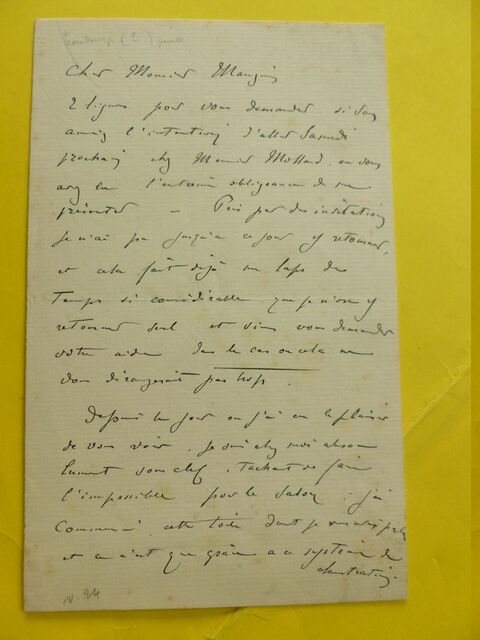 Cher Monsieur Mangin
2 lignes pour vous demander si vous
aviez l'intention d'aller Samedi
prochain chez Monsieur Mollard, où vous
avez eu l'extrême obligeance de me
présenter — Pris par des invitations
je n'ai pu jusqu'à ce jour y retourner,
et cela fait déjà un laps de
temps si considérable que je n'ose y
retourner seul et viens vous demander
votre aide dans le cas où cela ne
vous dérangerait pas trop.
Depuis le jour où j'ai eu le plaisir
de vous voir, je suis chez moi absolu
lument sous clef, tachant de faire
l'impossible pour le Salon; j'ai
commencé cette toile dont je vous avais parlé
et ce n'est que grâce à ce système de
claustration.